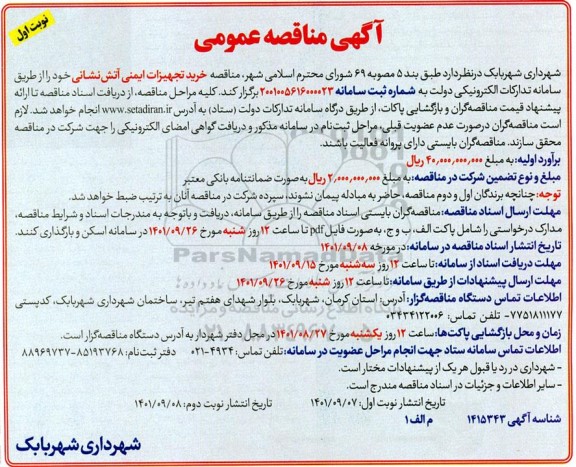 نوبت اول
آگهی مناقصه عمومی
شهرداری شهربابک درنظردارد طبق بند ۵ مصوبه ۶۹ شورای محترم اسلامی شهر، مناقصه خرید تجهیزات ایمنی آتش نشانی خود را از طریق
سامانه تدارکات الکترونیکی دولت به شماره ثبت سامانه ۲۰۰۱۰۰۵۶۱۶۰۰۰۰۲۳ برگزار کند. کلیه مراحل مناقصه، از دریافت اسناد مناقصه تا ارائه
پیشنهاد قیمت مناقصه‌گران و بازگشایی پاکات، از طریق درگاه سامانه تدارکات دولت (ستاد) به آدرس www.setadiran.ir انجام خواهد شد. لازم
است مناقصه‌گران درصورت عدم عضویت قبلی، مراحل ثبت نام در سامانه مذکور و دریافت گواهی امضای الکترونیکی را جهت شرکت در مناقصه
محقق سازند. مناقصه‌گران بایستی دارای پروانه فعالیت باشند.
برآورد اولیه: به مبلغ ۴۰,۰۰۰,۰۰۰,۰۰۰ ریال
مبلغ و نوع تضمین شرکت در مناقصه: به مبلغ ۲,۰۰۰,۰۰۰,۰۰۰ ریال به صورت ضمانتنامه بانکی معتبر
توجه: چنانچه برندگان اول و دوم مناقصه، حاضر به مبادله پیمان نشوند، سپرده شرکت در مناقصه آنان به ترتیب ضبط خواهد شد.
مهلت ارسال اسناد مناقصه: مناقصه‌گران بایستی اسناد مناقصه را از طریق سامانه، دریافت و باتوجه به مندرجات اسناد و شرایط مناقصه،
مدارک درخواستی را شامل پاکت الف، ب و ج، به صورت فایل pdf تا ساعت ۱۲ روز شنبه مورخ ۱۴۰۱/۰۹/۲۶ در سامانه اسکن و بارگذاری کنند.
تاریخ انتشار اسناد مناقصه در سامانه: در مورخه ۱۴۰۱/۰۹/۰۸
مهلت دریافت اسناد از سامانه: تا ساعت ۱۲ روز سه‌شنبه مورخ ۱۴۰۱/۰۹/۱۵
مهلت ارسال پیشنهادات از طریق سامانه: تا ساعت ۱۲ روز شنبه مورخ ۱۴۰۱/۰۹/۲۶
اطلاعات تماس دستگاه مناقصه‌گزار: آدرس: استان کرمان، شهربابک، بلوار شهدای هفتم تیر، ساختمان شهرداری شهربابک، کدپستی
۷۷۵۱۸۱۱۱۷۷- تلفن تماس: ۰۳۴۳۴۱۲۲۰۰۶
زمان و محل بازگشایی پاکت‌ها: ساعت ۱۲ روز یکشنبه مورخ ۱۴۰۱/۰۸/۲۷ در محل دفتر شهردار به آدرس دستگاه مناقصه‌گزار است.
اطلاعات تماس سامانه ستاد جهت انجام مراحل عضویت در سامانه: تلفن تماس: ۴۹۳۴-۰۲۱ دفتر ثبت نام: ۸۵۱۹۳۷۶۸-۸۸۹۶۹۷۳۷
- شهرداری در رد یا قبول هر یک از پیشنهادات مختار است.
- سایر اطلاعات و جزئیات در اسناد مناقصه مندرج است.
تاریخ انتشار نوبت اول: ۱۴۰۱/۰۹/۰۷ تاریخ انتشار نوبت دوم: ۱۴۰۱/۰۹/۰۸
شناسه آگهی ۱۴۱۵۳۴۳ م الف ۱
شهرداری شهربابک
ParsNamadData